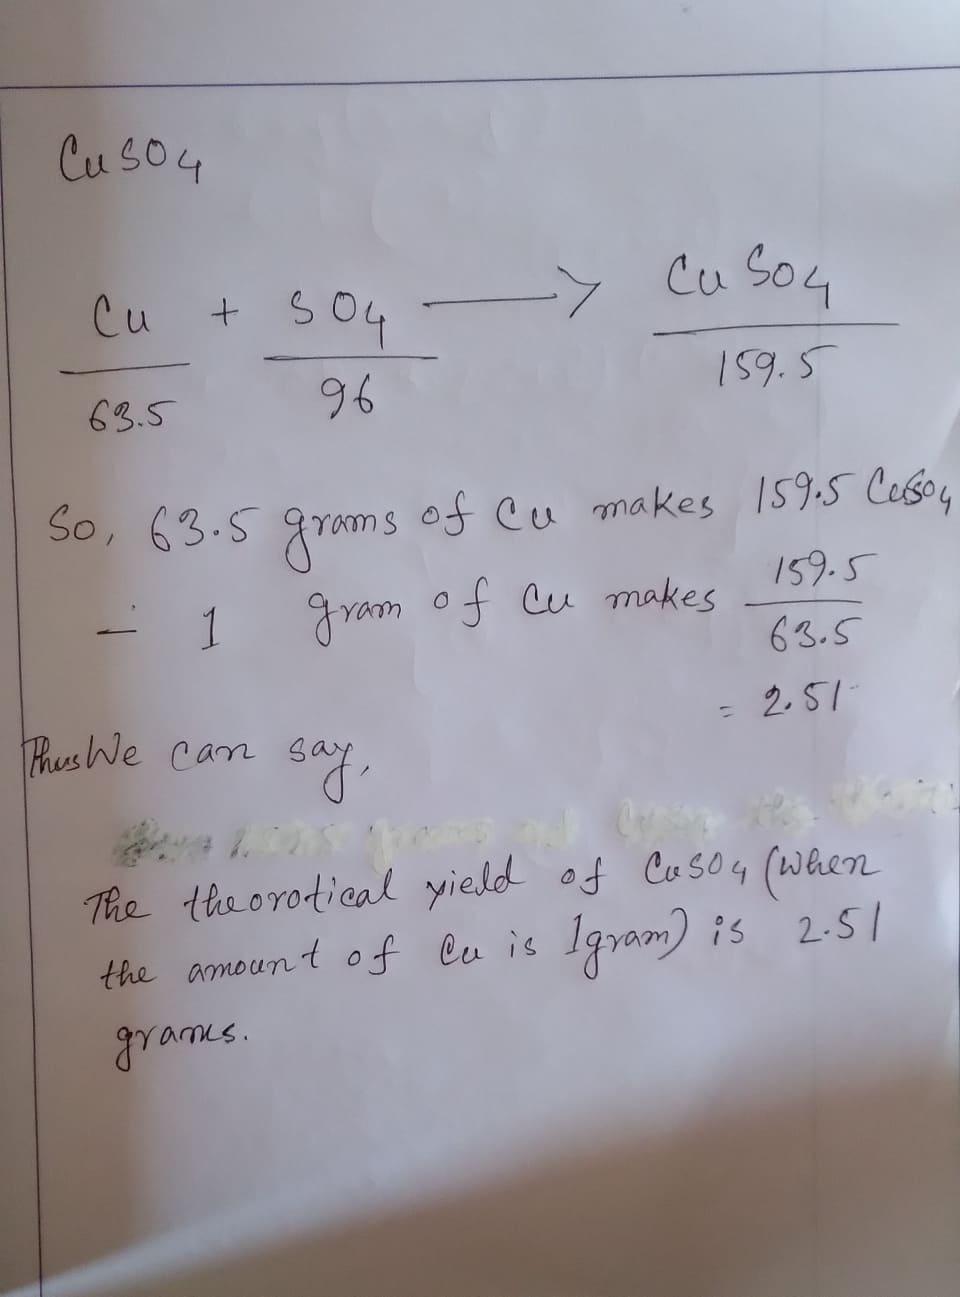 CuSO4
Cu + SO4 → CuSO4
63.5 96 159.5
So, 63.5 grams of Cu makes 159.5 CuSO4
∴ 1 gram of Cu makes 159.5
63.5
= 2.51
Thus We can say,
The theorotical yield of CuSO4 (When
the amount of Cu is 1gram) is 2.51
grams.